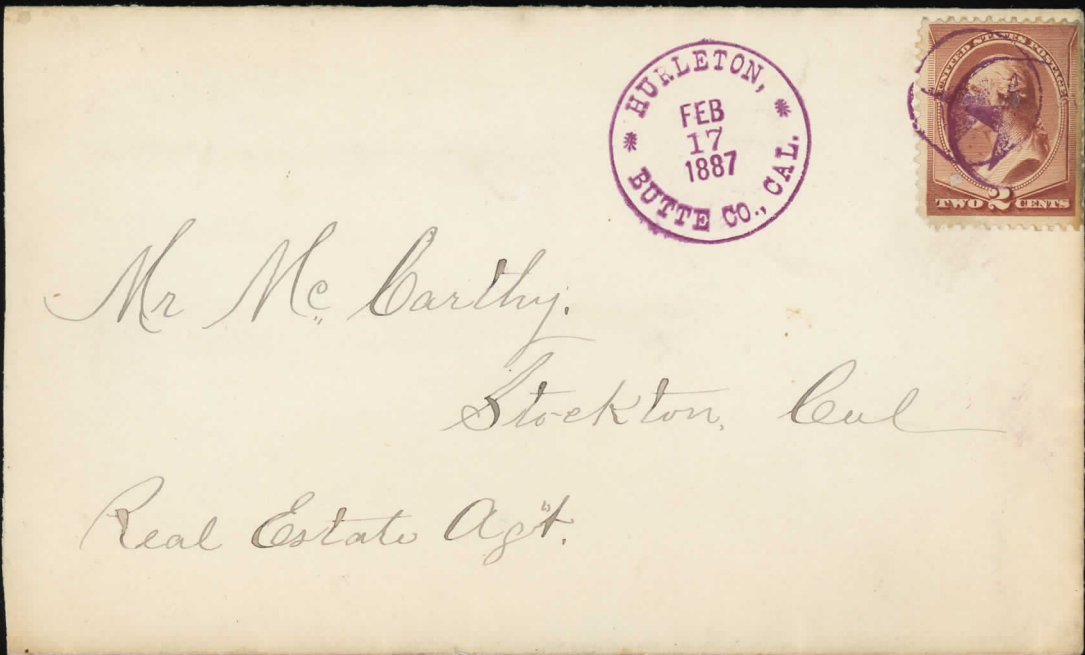 HURLETON,
FEB
17
1887
BUTTE CO., CAL.
UNITED STATES POSTAGE
TWO 2 CENTS
Mr Mc Carthy.
Stockton, Cal
Real Estate Agt.